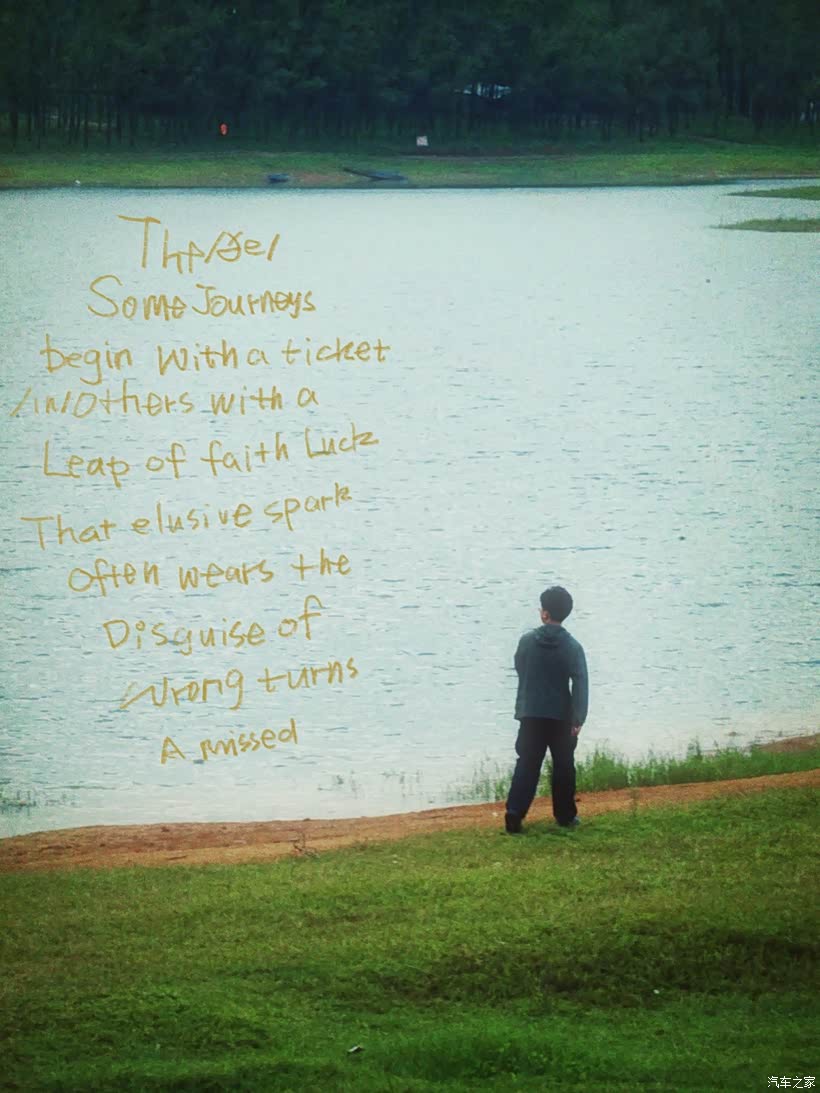 Some Journeys
begin with a ticket
others with a
Leap of faith Luck
That elusive spark
often wears the
Disguise of
wrong turns
A missed
汽车之家